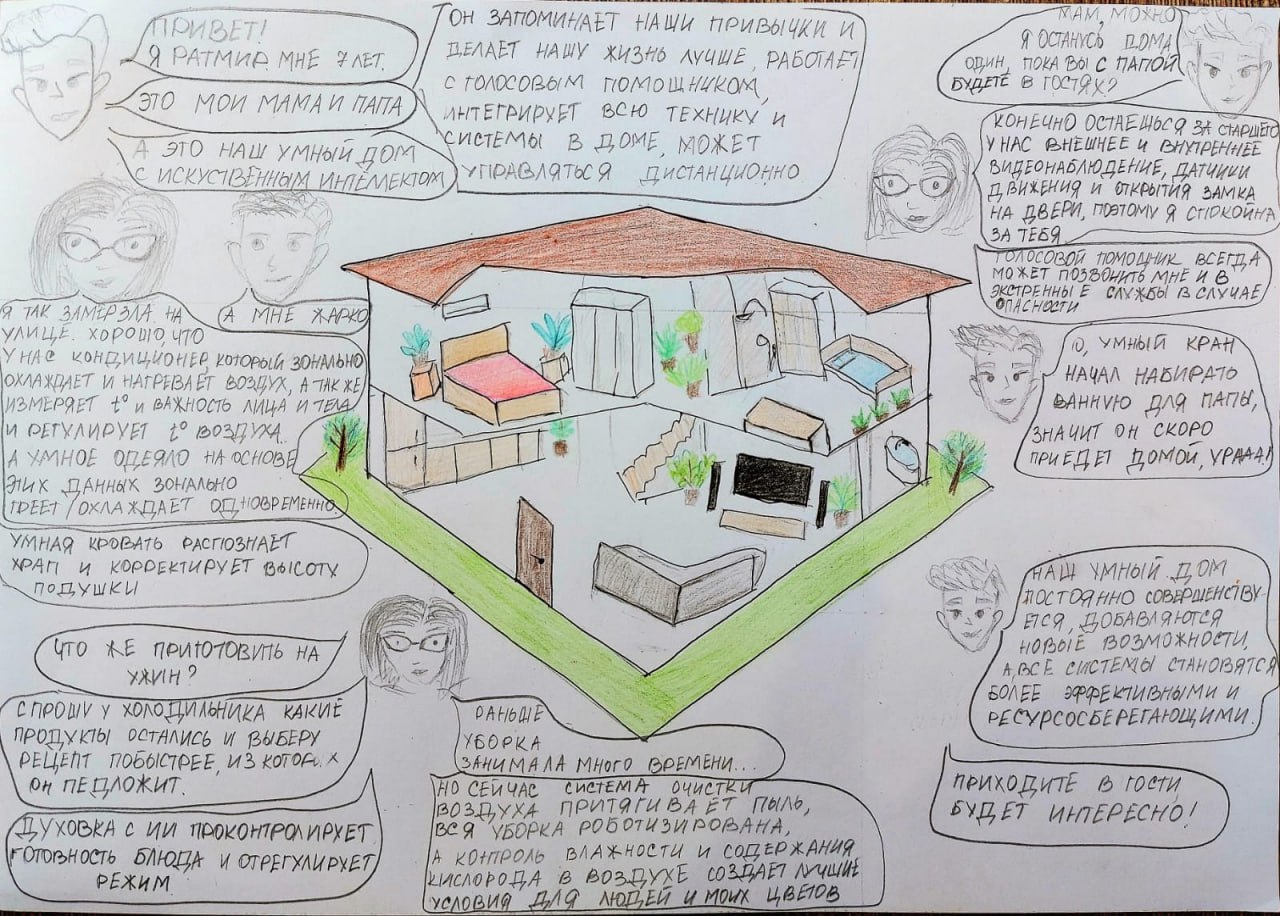 ПРИВЕТ!
Я РАТМИР МНЕ 7 ЛЕТ.
ЭТО МОИ МАМА И ПАПА
А ЭТО НАШ УМНЫЙ ДОМ
С ИСКУСТВЕННЫМ ИНТЕЛЛЕКТОМ
ОН ЗАПОМИНАЕТ НАШИ ПРИВЫЧКИ И
ДЕЛАЕТ НАШУ ЖИЗНЬ ЛУЧШЕ, РАБОТАЕТ
С ГОЛОСОВЫМ ПОМОЩНИКОМ,
ИНТЕГРИРУЕТ ВСЮ ТЕХНИКУ И
СИСТЕМЫ В ДОМЕ, МОЖЕТ
УПРАВЛЯТЬСЯ ДИСТАНЦИОННО
МАМ, МОЖНО
Я ОСТАНУСЬ ДОМА
ОДИН, ПОКА ВЫ С ПАПОЙ
БУДЕТЕ В ГОСТЯХ?
КОНЕЧНО ОСТАЕШЬСЯ ЗА СТАРШЕГО
У НАС ВНЕШНЕЕ И ВНУТРЕННЕЕ
ВИДЕОНАБЛЮДЕНИЕ, ДАТЧИКИ
ДВИЖЕНИЯ И ОТКРЫТИЯ ЗАМКА
НА ДВЕРИ, ПОЭТОМУ Я СПОКОЙНА
ЗА ТЕБЯ
ГОЛОСОВОЙ ПОМОЩНИК ВСЕГДА
МОЖЕТ ПОЗВОНИТЬ МНЕ И В
ЭКСТРЕННЫЕ СЛУЖБЫ В СЛУЧАЕ
ОПАСНОСТИ
Я ТАК ЗАМЕРЗЛА НА
УЛИЦЕ. ХОРОШО, ЧТО
У НАС КОНДИЦИОНЕР, КОТОРЫЙ ЗОНАЛЬНО
ОХЛАЖДАЕТ И НАГРЕВАЕТ ВОЗДУХ, А ТАК ЖЕ
ИЗМЕРЯЕТ t° И ВАЖНОСТЬ ЛИЦА И ТЕЛА
И РЕГУЛИРУЕТ t° ВОЗДУХА.
А УМНОЕ ОДЕЯЛО НА ОСНОВЕ
ЭТИХ ДАННЫХ ЗОНАЛЬНО
ГРЕЕТ/ОХЛАЖДАЕТ ОДНОВРЕМЕННО.
А МНЕ ЖАРКО
УМНАЯ КРОВАТЬ РАСПОЗНАЕТ
ХРАП И КОРРЕКТИРУЕТ ВЫСОТУ
ПОДУШКИ
О, УМНЫЙ КРАН
НАЧАЛ НАБИРАТЬ
ВАННУЮ ДЛЯ ПАПЫ,
ЗНАЧИТ ОН СКОРО
ПРИЕДЕТ ДОМОЙ, УРААА!
ЧТО ЖЕ ПРИГОТОВИТЬ НА
УЖИН?
СПРОШУ У ХОЛОДИЛЬНИКА КАКИЕ
ПРОДУКТЫ ОСТАЛИСЬ И ВЫБЕРУ
РЕЦЕПТ ПОБЫСТРЕЕ, ИЗ
ОН ПЕДЛОЖИТ.
ДУХОВКА С ИИ ПРОКОНТРОЛИРУЕТ
ГОТОВНОСТЬ БЛЮДА И ОТРЕГУЛИРУЕТ
РЕЖИМ
РАНЬШЕ
УБОРКА
ЗАНИМАЛА МНОГО ВРЕМЕНИ...
НО СЕЙЧАС СИСТЕМА ОЧИСТКИ
ВОЗДУХА ПРИТЯГИВАЕТ ПЫЛЬ,
ВСЯ УБОРКА РОБОТИЗИРОВАНА,
А КОНТРОЛЬ ВЛАЖНОСТИ И СОДЕРЖАНИЯ
КИСЛОРОДА В ВОЗДУХЕ СОЗДАЕТ ЛУЧШИЕ
УСЛОВИЯ ДЛЯ ЛЮДЕЙ И МОИХ ЦВЕТОВ
НАШ УМНЫЙ ДОМ
ПОСТОЯННО СОВЕРШЕНСТВУ-
ЕТСЯ, ДОБАВЛЯЮТСЯ
НОВЫЕ ВОЗМОЖНОСТИ,
А ВСЕ СИСТЕМЫ СТАНОВЯТСЯ
БОЛЕЕ ЭФФЕКТИВНЫМИ И
РЕСУРСОСБЕРЕГАЮЩИМИ.
ПРИХОДИТЕ В ГОСТИ,
БУДЕТ ИНТЕРЕСНО!